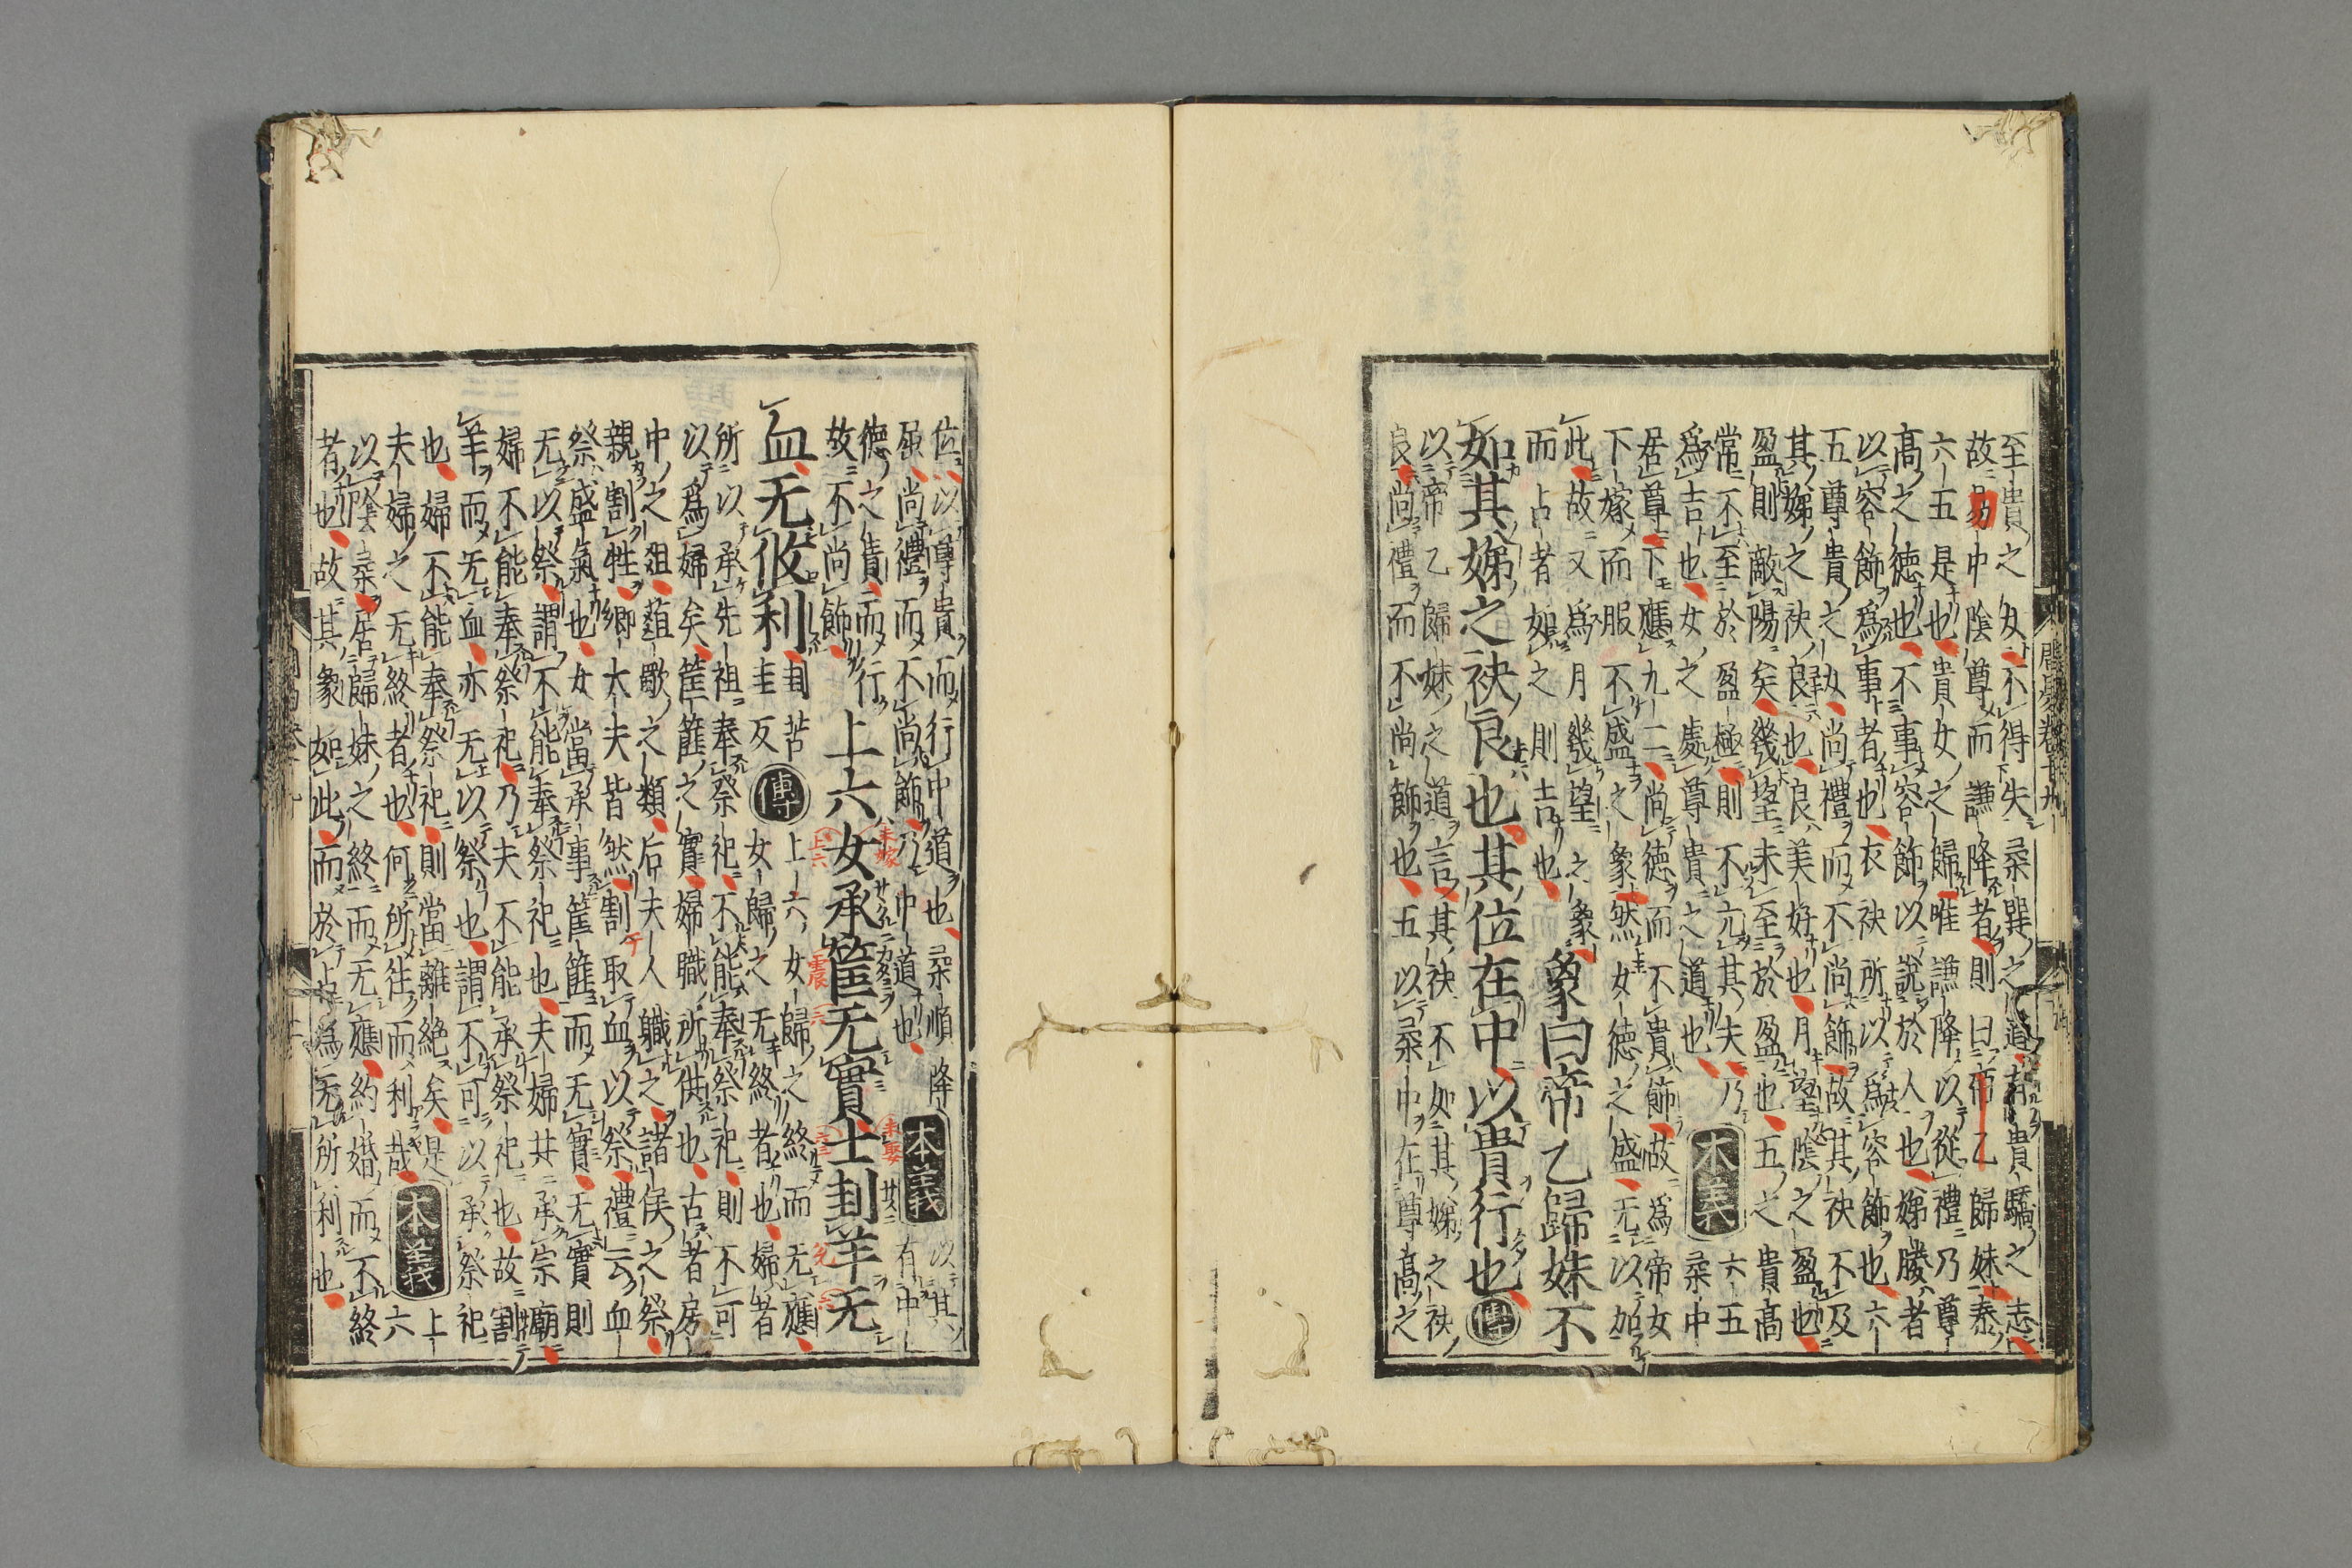 周易卷十九
至貴之女不得失柔巽之道有貴驕之志
故易中陰尊而謙降者則曰帝乙歸妹泰
六五是也貴女之歸唯謙降以從禮乃尊
高之德也不事容飾以說於人也娣媵者
以容飾爲事者也衣袂所以爲容飾也六
五尊貴之女尚禮而不尚飾故其袂不及
其娣之袂良也良美好也月望陰之盈也
盈則敵陽矣幾望未至於盈也五之貴高
常不至於盈極則不亢其夫乃
爲吉也女之處尊貴之道也
本義
六五
柔中
居尊下應九二尚德而不貴飾故爲帝女
下嫁而服不盛之象然女德之盛无以加
此故又爲月幾望之象
而占者如之則吉也
象曰帝乙歸妹不
如其娣之袂良也其位在中以貴行也
傳
以帝乙歸妹之道言其袂不如其娣之袂
良尚禮而不尚飾也五以柔中在尊高之
位以尊貴而行中道也柔順降
屈尚禮而不尚飾乃中道也
本義
以其
有中
德之貴而行
故不尚飾
上六女承筐无實士刲羊无
血无攸利
刲苦
圭反
傳
上六女歸之終而无應
女歸之无終者也婦者
所以承先祖奉祭祀不能奉祭祀則不可
以爲婦矣筐篚之實婦職所供也古者房
中之俎葅歜之類后夫人職之諸侯之祭
親割牲卿大夫皆然割取血以祭禮云血
祭盛氣也女當承事筐篚而无實无實則
无以祭謂不能奉祭祀也夫婦共承宗廟
婦不能奉祭祀乃夫不能承祭祀也故割
羊而无血亦无以祭也謂不可以承祭祀
也婦不能奉祭祀則當離絶矣是
夫婦之无終者也何所往而利哉
本義
上
六
以陰柔居歸妹之終而无應約婚而不終
者也故其象如此而於占爲无所利也